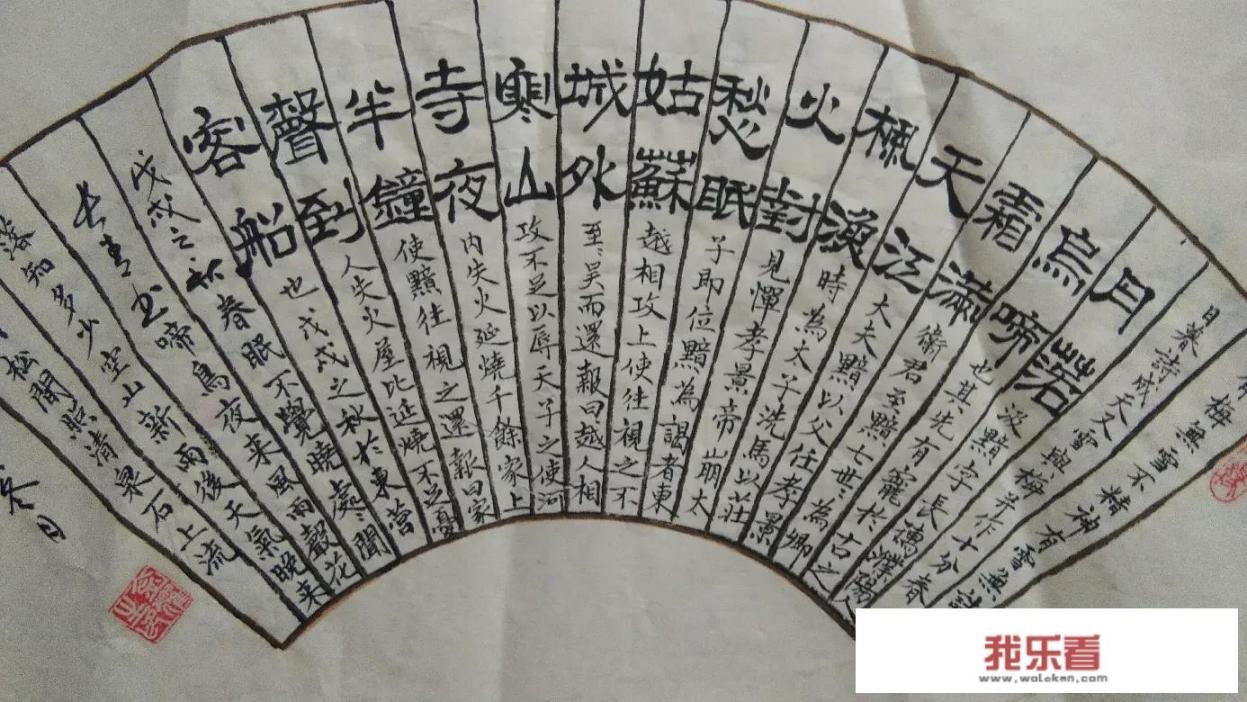 有梅無雪不精神有雪無詩
日暮詩成天又雪與梅并作十分春
月落汲黯字長孺濮陽人
烏啼也其先有寵於古之
霜滿衛君至黯七世々為卿
天江大夫黯以父任孝景
楓漁時為太子洗馬以莊
火對見憚孝景帝崩太
愁眠子即位黯為謁者東
姑蘇越相攻上使往視之不
城外至々吳而還報曰越人相
寒山攻不足以辱天子之使河
寺夜內失火延燒千餘家上
半鐘使黯往視之還報曰家
聲到人失火屋比延燒不足憂
客船也戊戌之秋於東營
戊戌之秋春眠不覺曉處々聞
長青書啼鳥夜来風雨聲花
落知多少空山新雨後天氣晚来
月松間照清泉石上流
冬月
我乐看
www.waleken.com